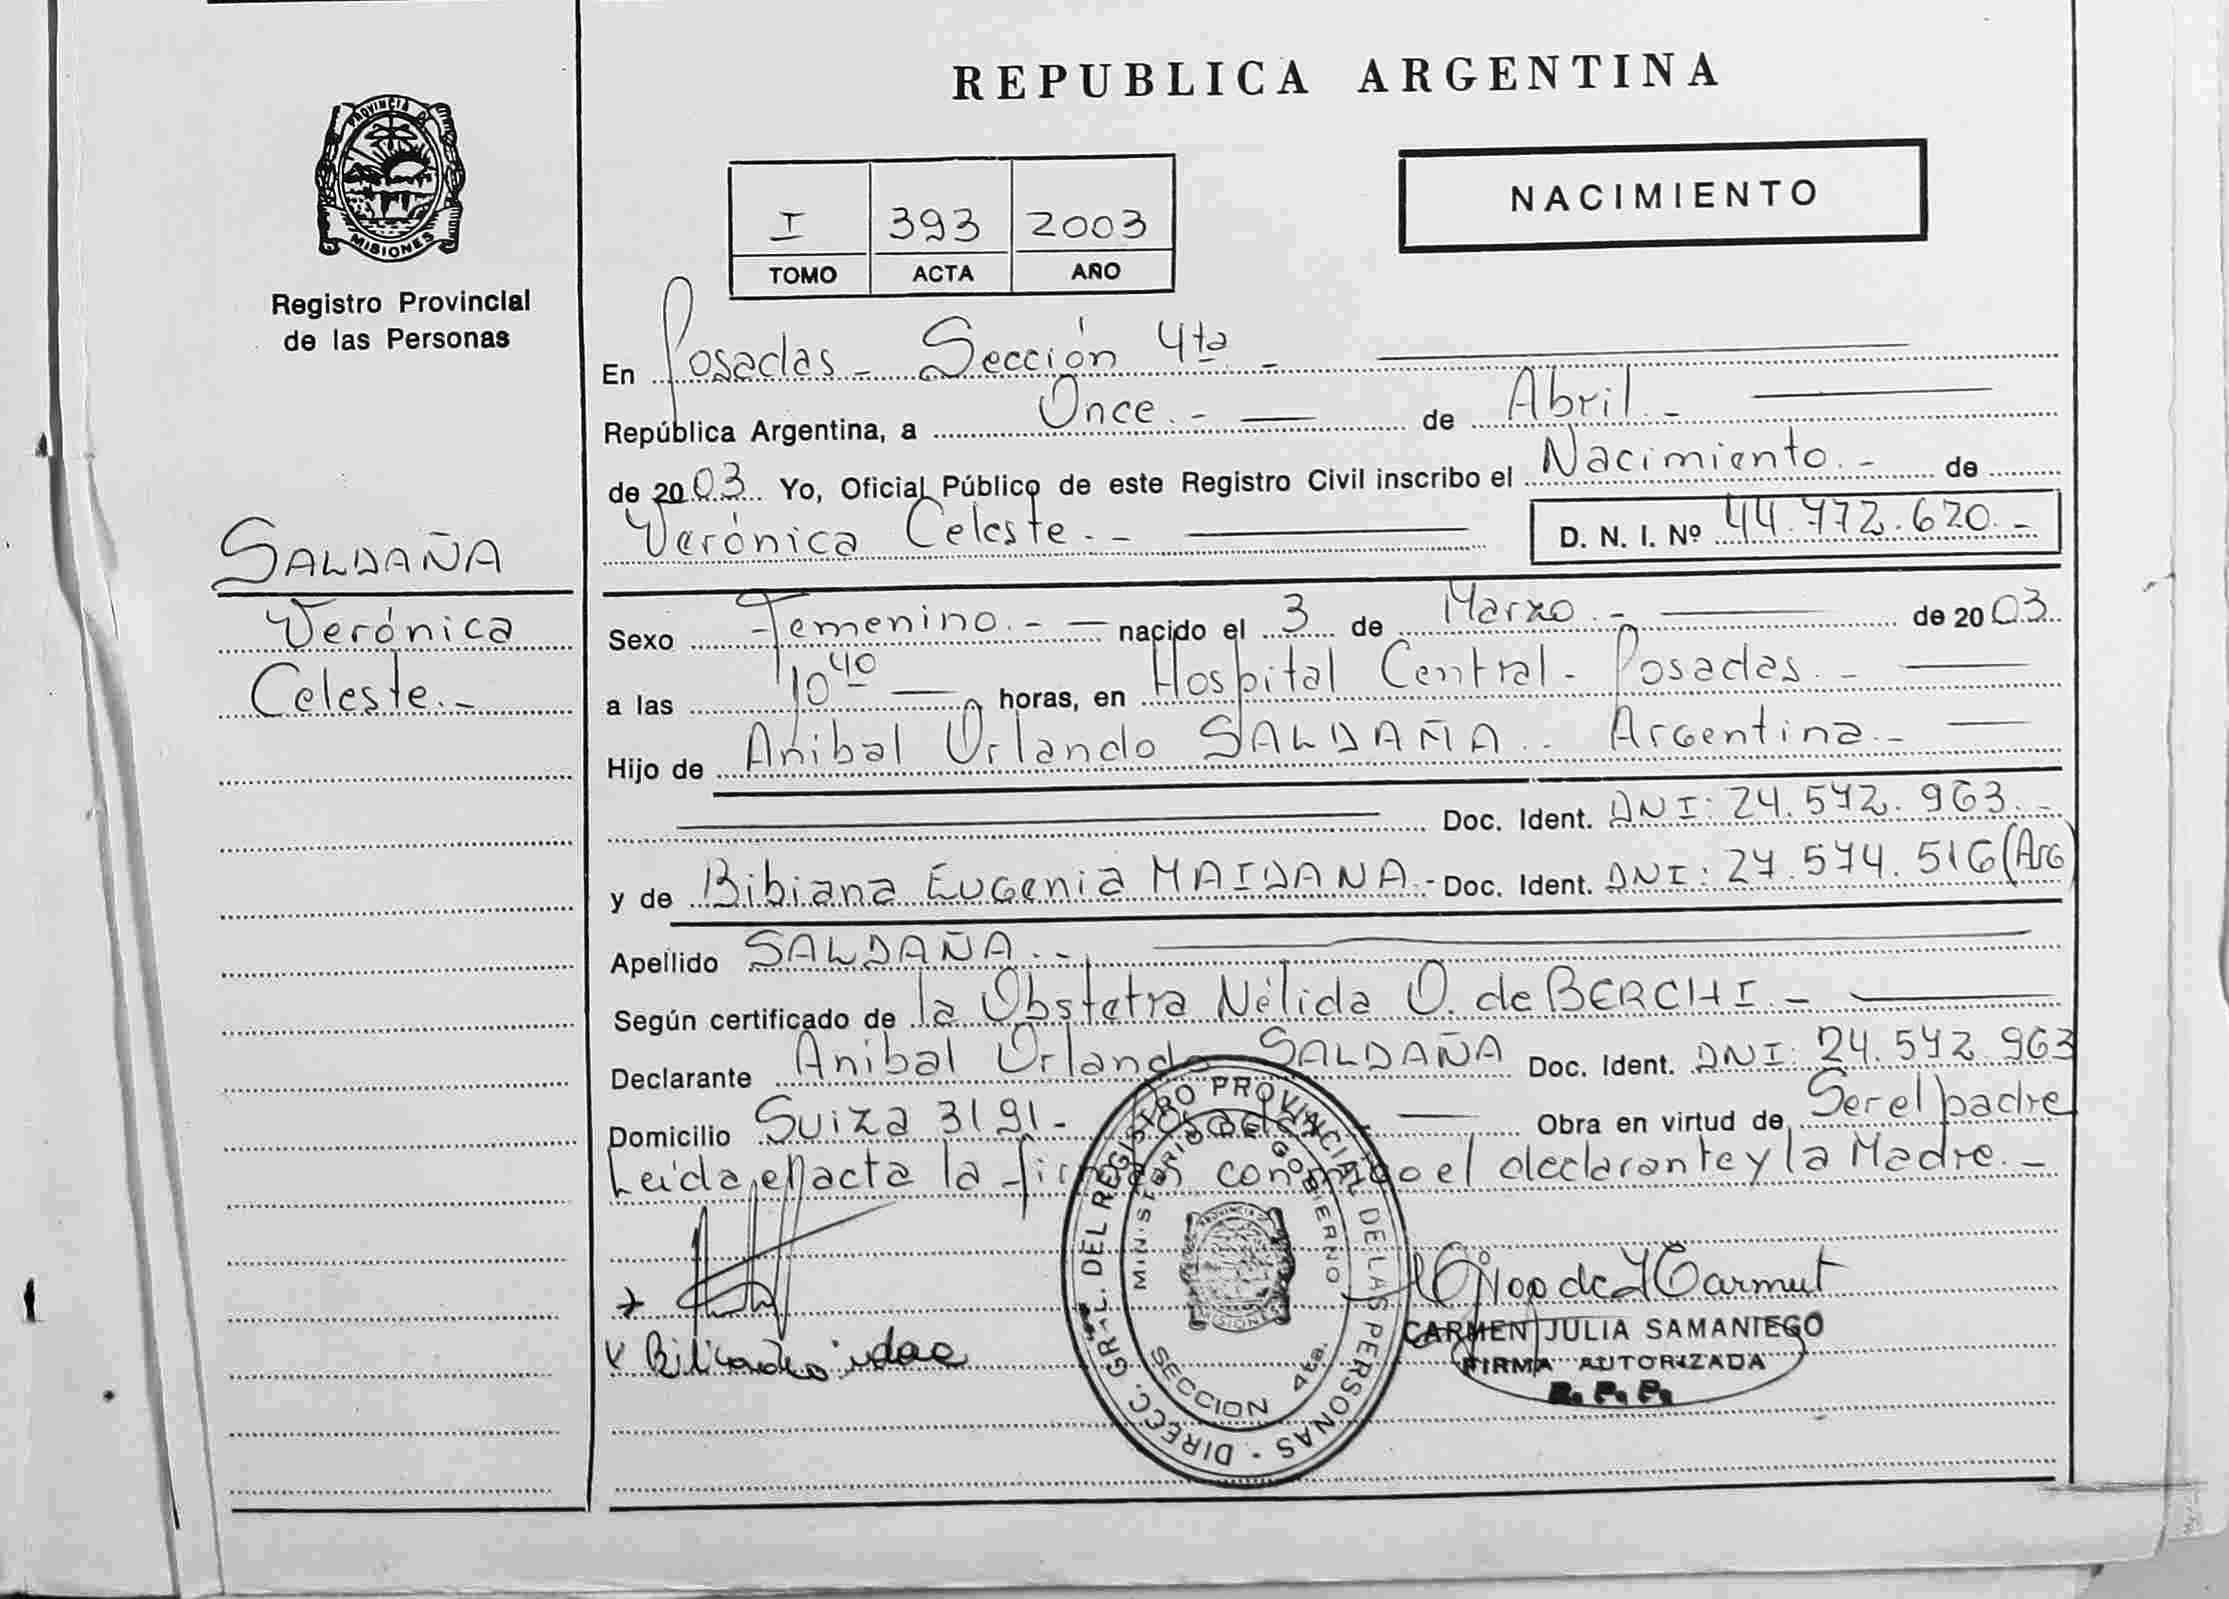 REPUBLICA ARGENTINA
PROVINCIA DE
MISIONES
Registro Provincial
de las Personas
NACIMIENTO
I 393 2003
TOMO ACTA AÑO
En Posadas - Sección 4ta -
República Argentina, a Once.- de Abril.-
de 2003 Yo, Oficial Público de este Registro Civil inscribo el Nacimiento.- de
Verónica Celeste.- D. N. I. Nº 44.772.620.-
SALDAÑA
Verónica
Celeste.-
Sexo Femenino.- nacido el 3 de Marzo.- de 2003
a las 10 40 horas, en Hospital Central - Posadas.-
Hijo de Anibal Orlando SALDAÑA.. Argentina.-
Doc. Ident. DNI: 24.542.963.-
y de Bibiana Eugenia MAIDANA.- Doc. Ident. DNI: 27.574.516 (Arg
Apellido SALDAÑA.-
Según certificado de la Obstetra Nélida O. de BERCHI.-
Declarante Anibal Orlando SALDAÑA Doc. Ident. DNI: 24.542.963
Domicilio Suiza 3191- Posadas Obra en virtud de Ser el padre
Leída el acta la firman conmigo el declarante y la Madre.-
DIRECC. GRAL. DEL REGISTRO PROVINCIAL DE LAS PERSONAS
MINISTERIO DE GOBIERNO
PROVINCIA DE
MISIONES
SECCION 4ta.
CARMEN JULIA SAMANIEGO
FIRMA AUTORIZADA
R. P. P.